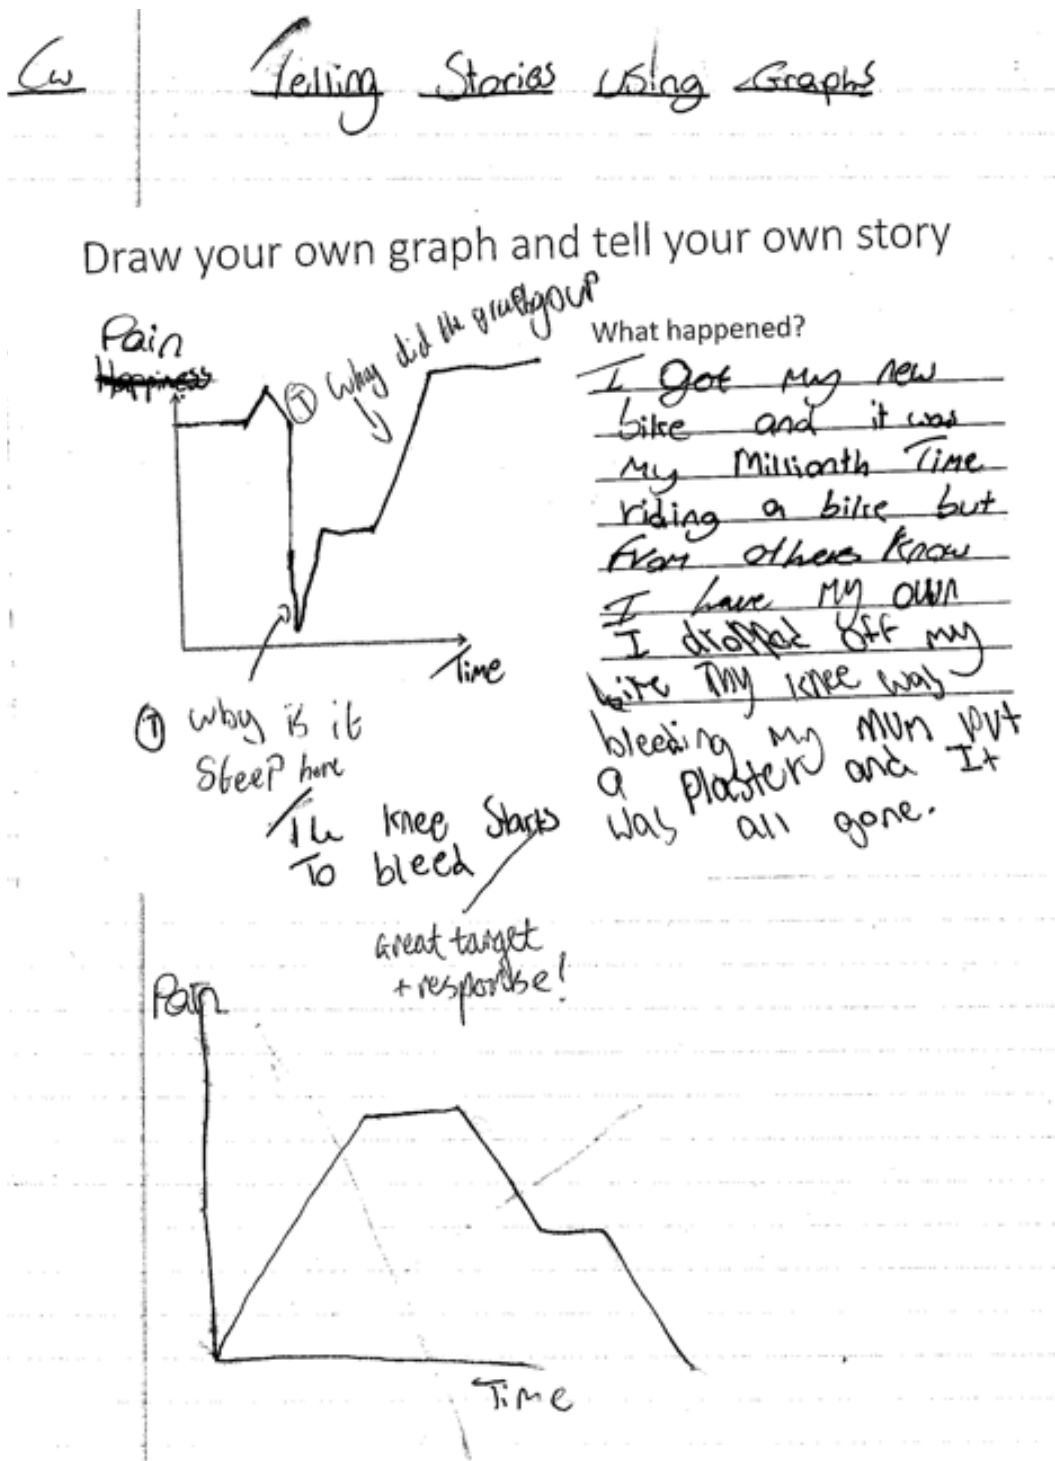 Cw Telling Stories using Graphs
Draw your own graph and tell your own story
Pain
Happiness
T why did the graph go up
Time
T why is it
steep here
The knee Starts
To bleed
great target
+ response!
What happened?
I got my new
bike and it was
my Millionth Time
riding a bike but
From others know
I have my own
I dropped off my
bike my knee was
bleeding my mum put
a plaster and It
was all gone.
Pain
Time